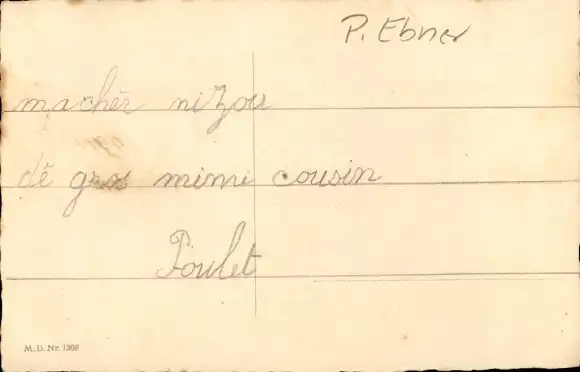 P. Ebner
machěr nizou
dě gros mimi cousin
Poulet
M.D. Nr. 1208